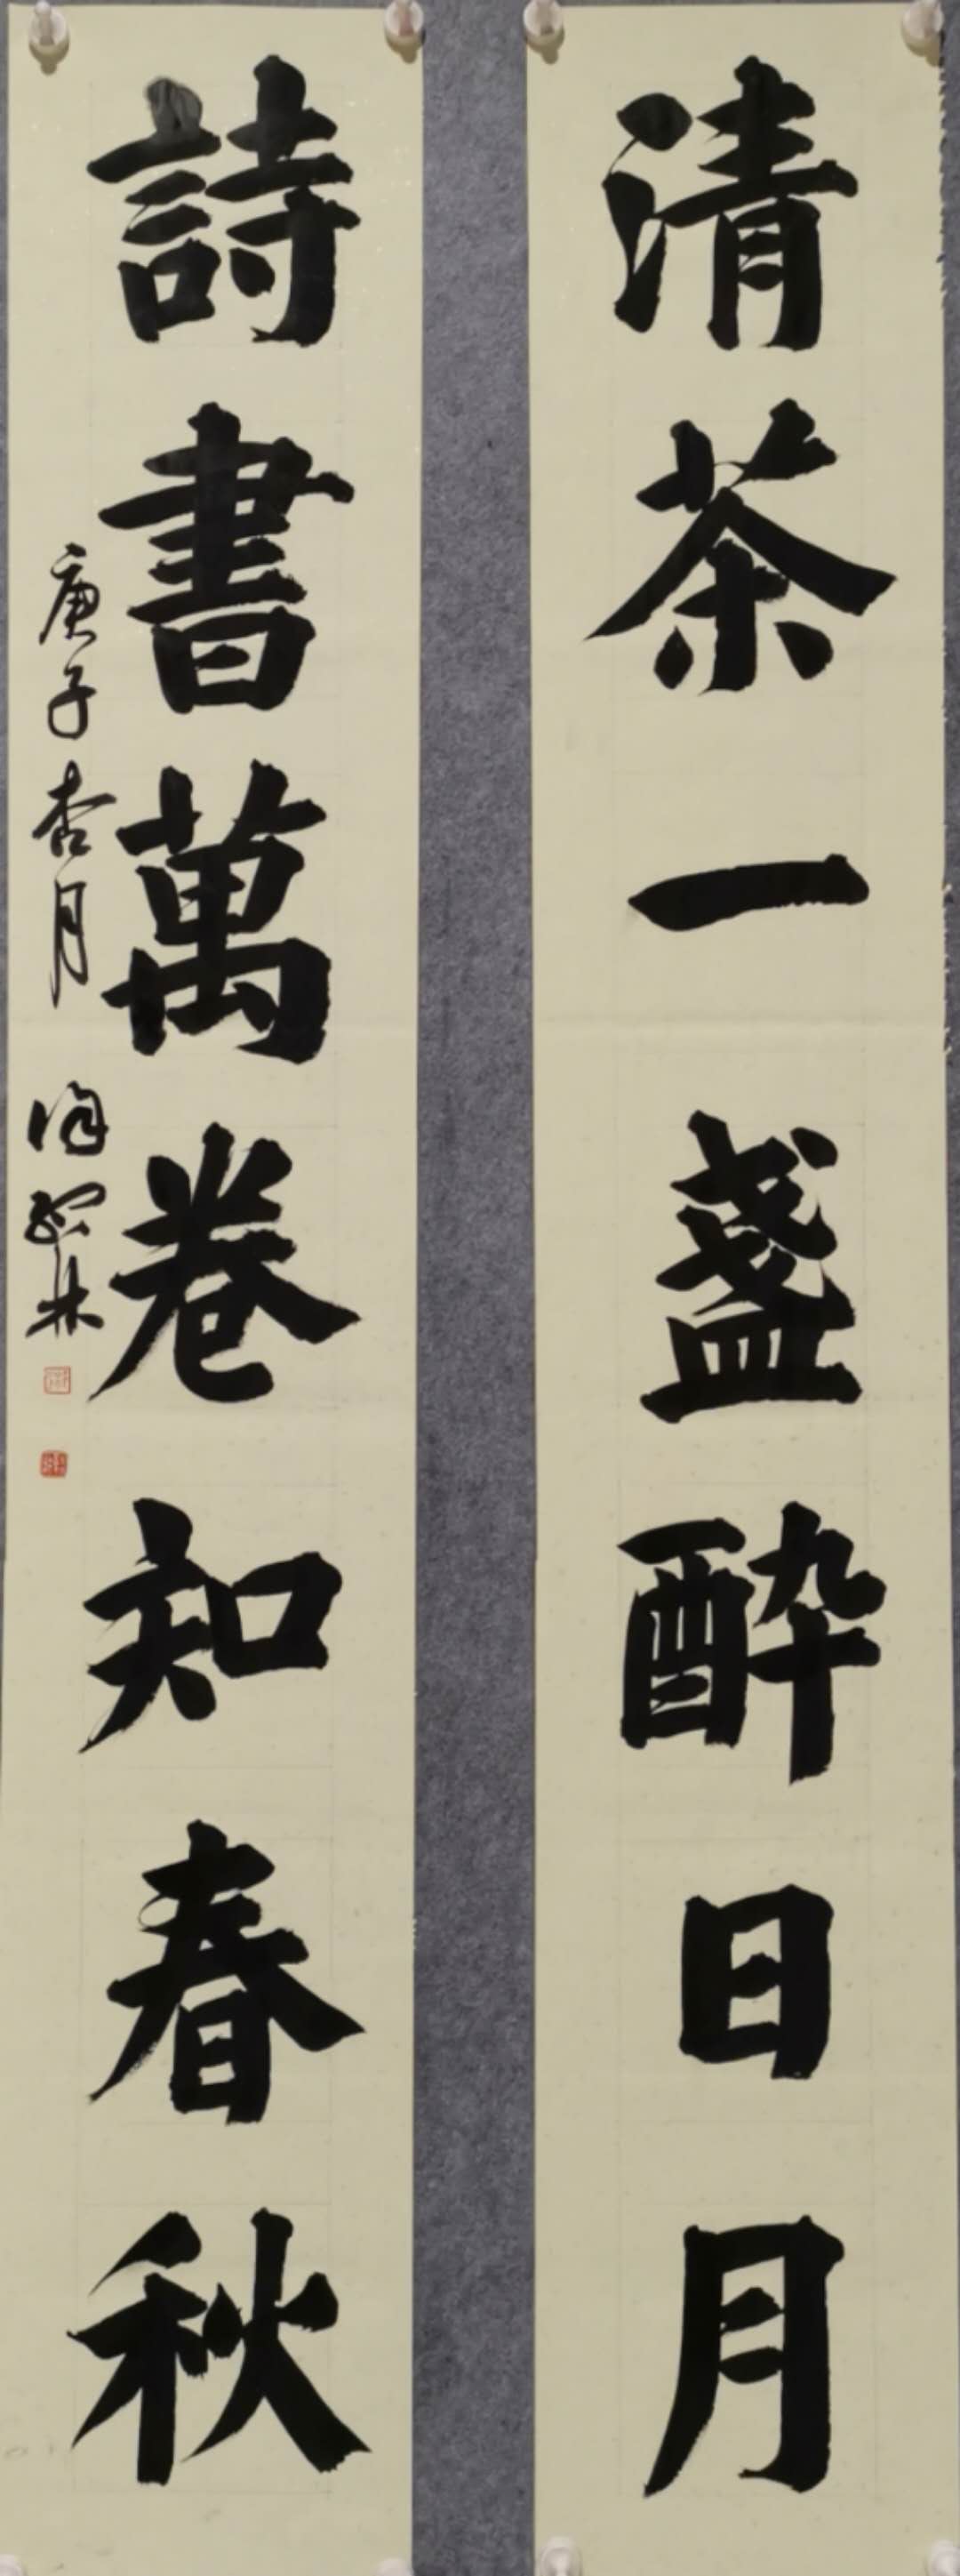 清茶一盞醉日月
詩書萬卷知春秋
庚子杏月